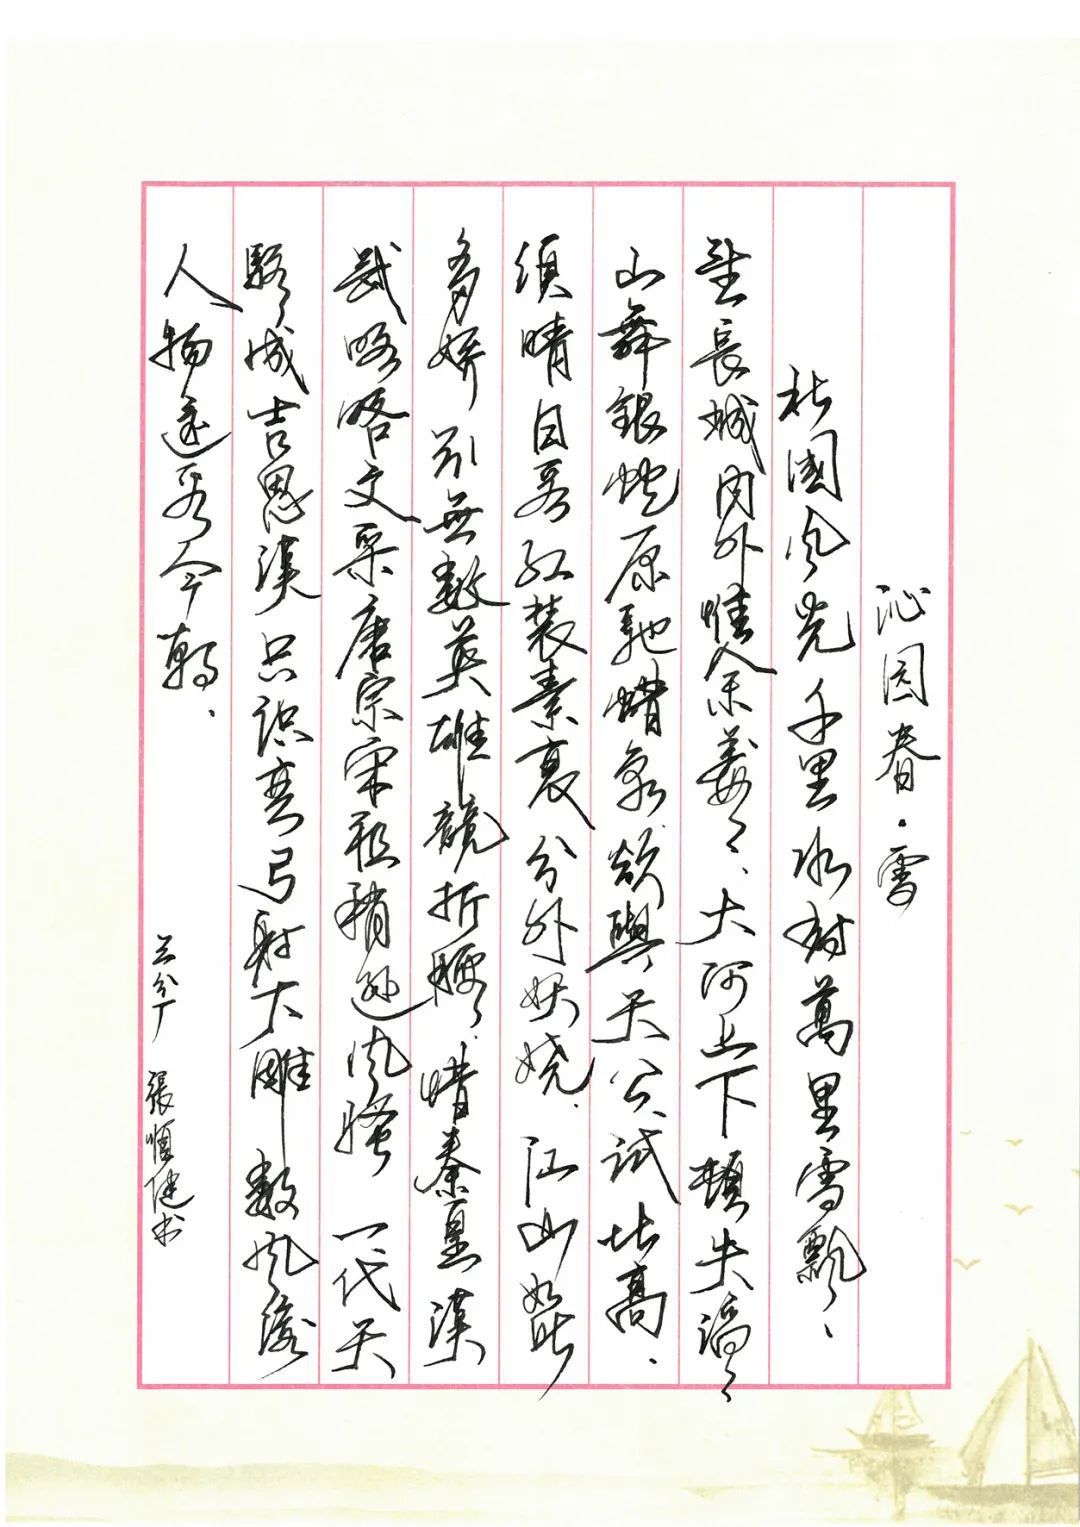 沁园春·雪
北國风光千里冰封萬里雪飘、
望長城内外惟余莽々、大河上下頓失滔々
山舞银蛇原驰蜡象欲與天公试比高.
须晴日看红装素裹分外妖娆.江山如此
多娇引無数英雄競折腰.惜秦皇漢
武略文采唐宗宋祖稍逊风骚一代天
骄成吉思漢只识弯弓射大雕数风流
人物还看今朝.
三分厂 張順健书